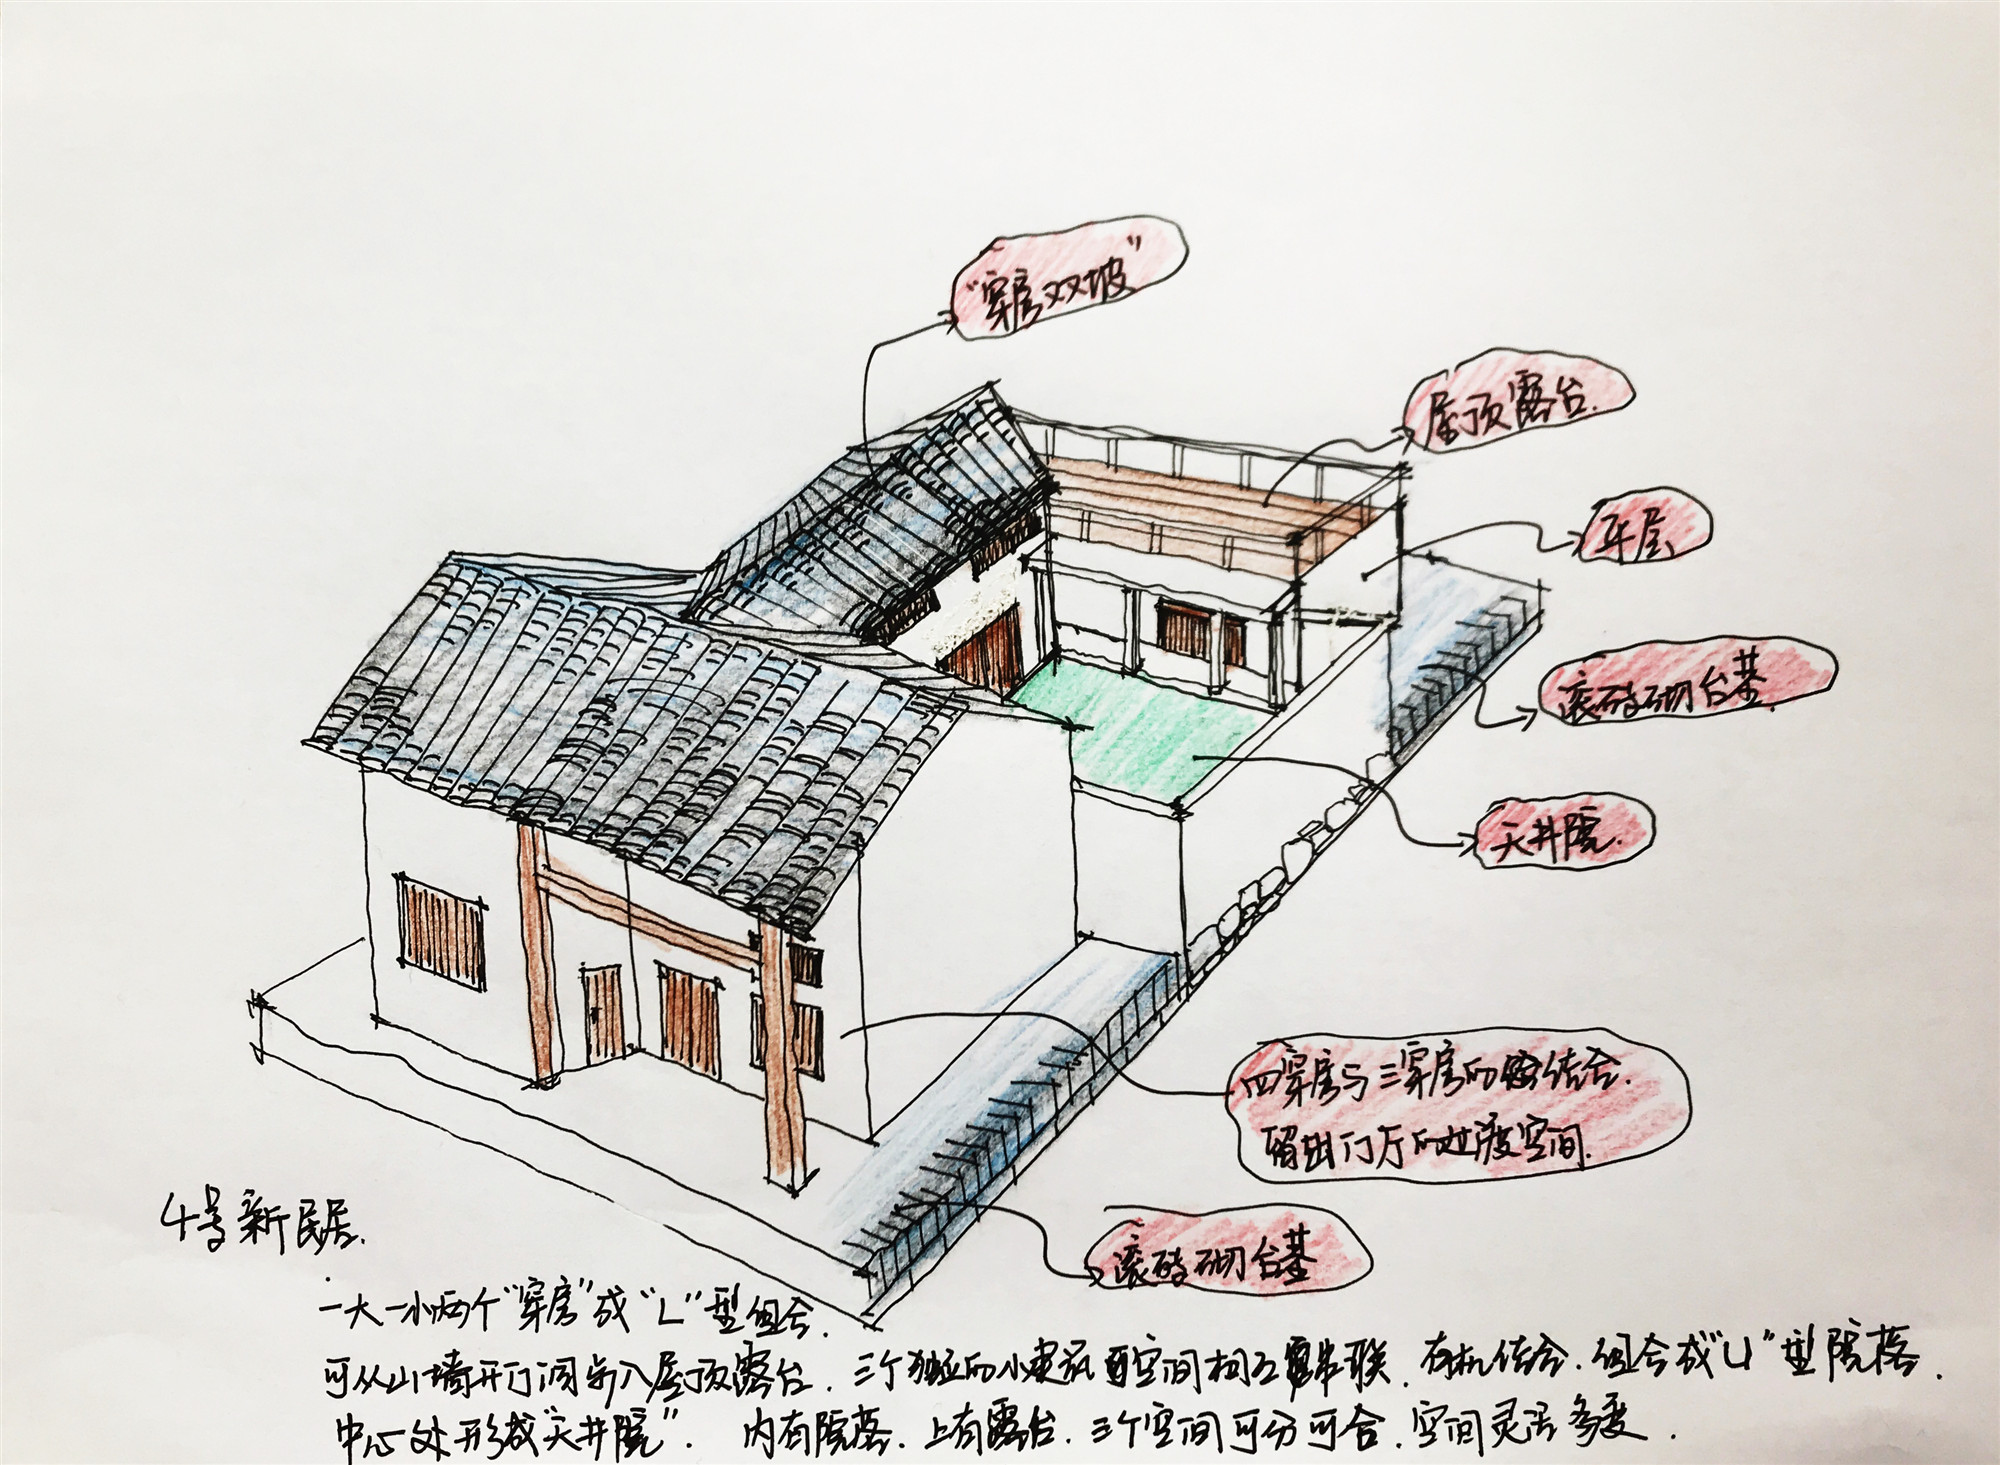 “穿房双坡”
屋顶露台.
平层
滚砖砌台基.
天井院.
四穿房与三穿房的结合.
留出门厅的过渡空间.
滚砖砌台基
4号新民居.
一大一小两个“穿房”成“L”型组合.
可从山墙开门洞步入屋顶露台. 三个独立的小建筑空间相互串联. 有机结合. 组合成“凵”型院落.
中心处形成“天井院”. 内有院落. 上有露台. 三个空间可分可合. 空间灵活多变.